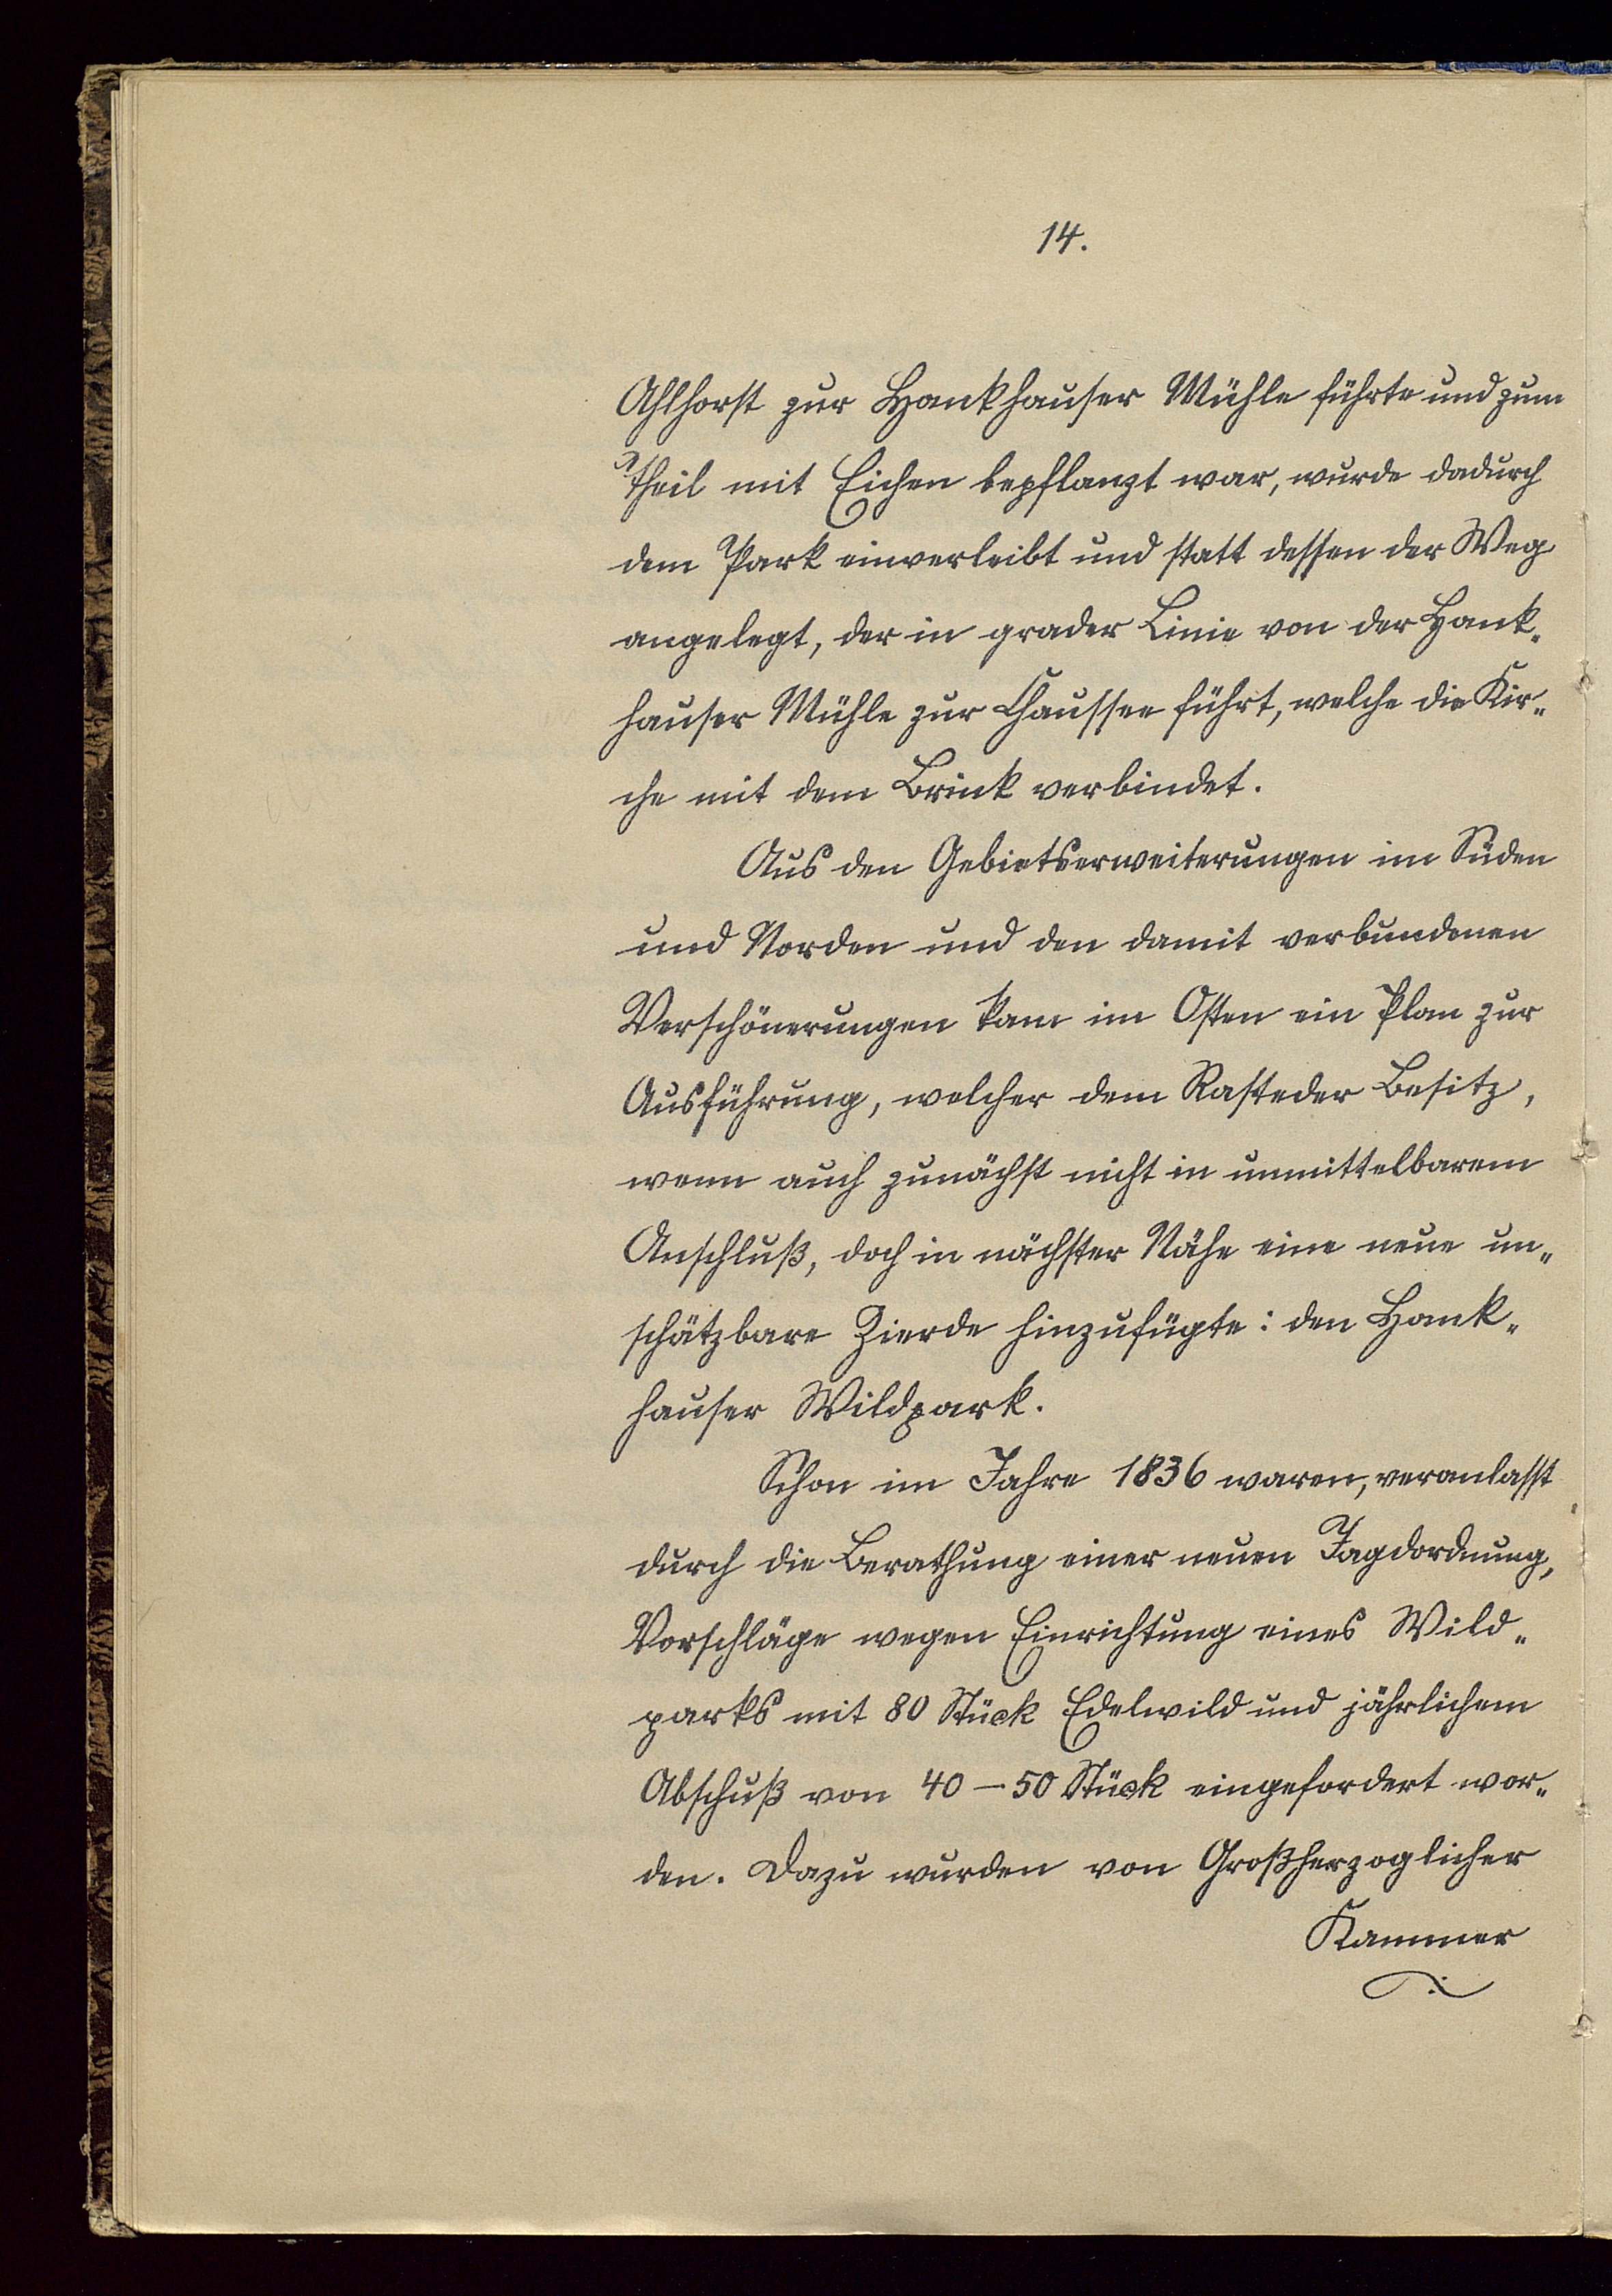 14.
Ahlhorst zur Hankhauser Mühle führte und zum
Theil mit Eichen bepflanzt war, wurde dadurch
dem Park einverleibt und statt dessen der Weg
angelegt, der in grader Linie von der Hank„
hauser Mühle zur Chaussee führt, welche die Kir„
che mit dem Brink verbindet.
Aus den Gebietserweiterungen im Süden
und Norden und den damit verbundenen
Verschönerungen kam im Osten ein Plan zur
Ausführung, welcher dem Rasteder Besitz,
wenn auch zunächst nicht in unmittelbarem
Anschluß, doch in nächster Nähe eine neue un„
schätzbare Zierde hinzufügte: den Hank„
hauser Wildpark.
Schon im Jahre 1836 waren, veranlasst
durch die Berathung einer neuen Jagdordnung,
Vorschläge wegen Einrichtung eines Wild„
parks mit 80 Stück Edelwild und jährlichem
Abschuß von 40 – 50 Stück eingefordert wor„
den. Dazu wurden von Großherzoglicher
Kammer